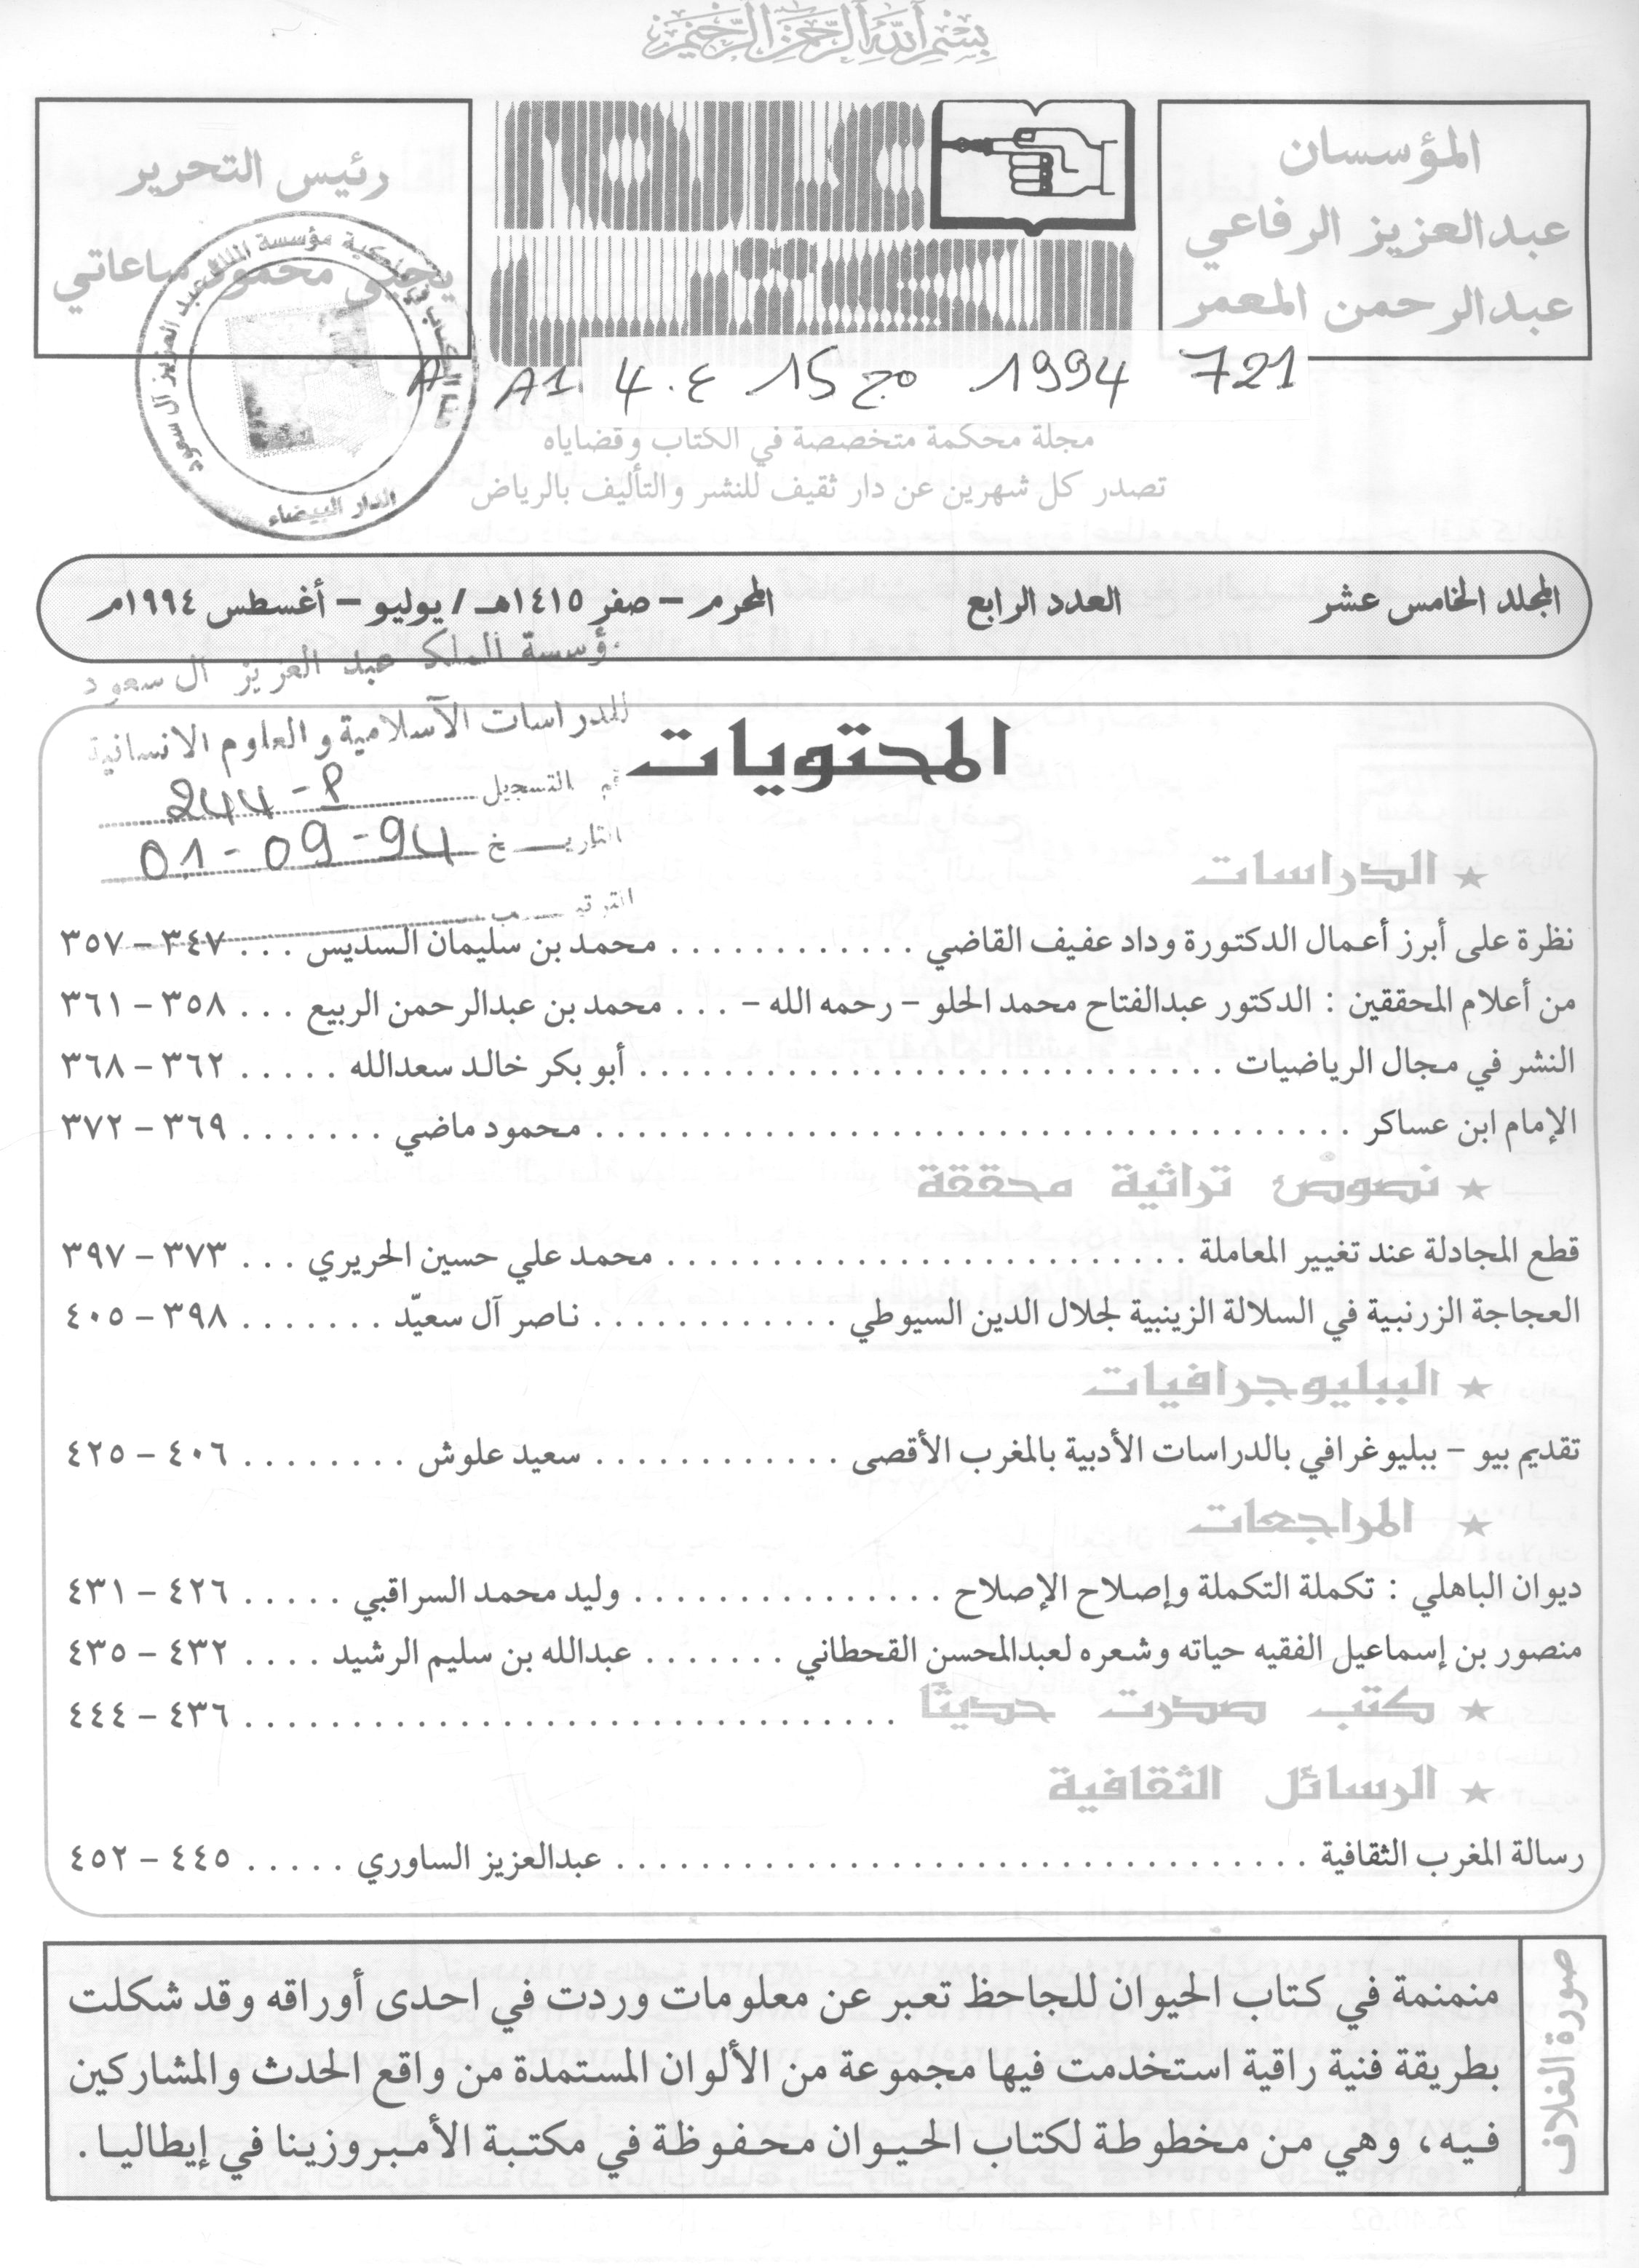 بسم الله الرحمن الرحيم
المؤسسان
عبدالعزيز الرفاعي
عبدالرحمن المعمر
عالم الكتب
رئيس التحرير
يحيى محمود ساعاتي
A A1. 4 .ع 15 مج 1994 721
مجلة محكمة متخصصة في الكتاب وقضاياه
تصدر كل شهرين عن دار ثقيف للنشر والتأليف بالرياض
مؤسسة الملك عبد العزيز آل سعود
الدار البيضاء
المجلد الخامس عشر العدد الرابع المحرم – صفر ١٤١٥هـ / يوليو – أغسطس ١٩٩٤م
مؤسسة الملك عبد العزيز آل سعود
للدراسات الآسلامية والعلوم الانسانية
رقم التسجيل 244-P
التاريـــخ 01-09-94
الترتيـــب
المحتويات
★ الدراسات
نظرة على أبرز أعمال الدكتورة وداد عفيف القاضي . . . . . . . . . . . . محمد بن سليمان السديس . . . ٣٤٧ – ٣٥٧
من أعلام المحققين : الدكتور عبدالفتاح محمد الحلو – رحمه الله – . . . محمد بن عبدالرحمن الربيع . . . ٣٥٨ – ٣٦١
النشر في مجال الرياضيات . . . . . . . . . . . . . . . . . . . . . . . . . . . . أبو بكر خالد سعدالله . . . . . ٣٦٢ – ٣٦٨
الإمام ابن عساكر . . . . . . . . . . . . . . . . . . . . . . . . . . . . . . . . . . . . محمود ماضي . . . . . . . ٣٦٩ – ٣٧٢
★ نصوص تراثية محققة
قطع المجادلة عند تغيير المعاملة . . . . . . . . . . . . . . . . . . . . . . . . . محمد علي حسين الحريري . . . ٣٧٣ – ٣٩٧
العجاجة الزرنبية في السلالة الزينبية لجلال الدين السيوطي . . . . . . . . . . . . ناصر آل سعيّد . . . . . . . ٣٩٨ – ٤٠٥
★ الببليوجرافيات
تقديم بيو – ببليوغرافي بالدراسات الأدبية بالمغرب الأقصى . . . . . . . . . . . . سعيد علوش . . . . . . . . ٤٠٦ – ٤٢٥
★ المراجعات
ديوان الباهلي : تكملة التكملة وإصلاح الإصلاح . . . . . . . . . . . . . . . وليد محمد السراقبي . . . . . ٤٢٦ – ٤٣١
منصور بن إسماعيل الفقيه حياته وشعره لعبدالمحسن القحطاني . . . . . . . عبدالله بن سليم الرشيد . . . . ٤٣٢ – ٤٣٥
★ كتب صدرت حديثًا . . . . . . . . . . . . . . . . . . . . . . . . . . . . . . . ٤٣٦ – ٤٤٤
★ الرسائل الثقافية
رسالة المغرب الثقافية . . . . . . . . . . . . . . . . . . . . . . . . . . . . . . . . . عبدالعزيز الساوري . . . . . ٤٤٥ – ٤٥٢
صورة الغلاف
منمنمة في كتاب الحيوان للجاحظ تعبر عن معلومات وردت في احدى أوراقه وقد شكلت
بطريقة فنية راقية استخدمت فيها مجموعة من الألوان المستمدة من واقع الحدث والمشاركين
فيه، وهي من مخطوطة لكتاب الحيوان محفوظة في مكتبة الأمبروزينا في إيطاليا.